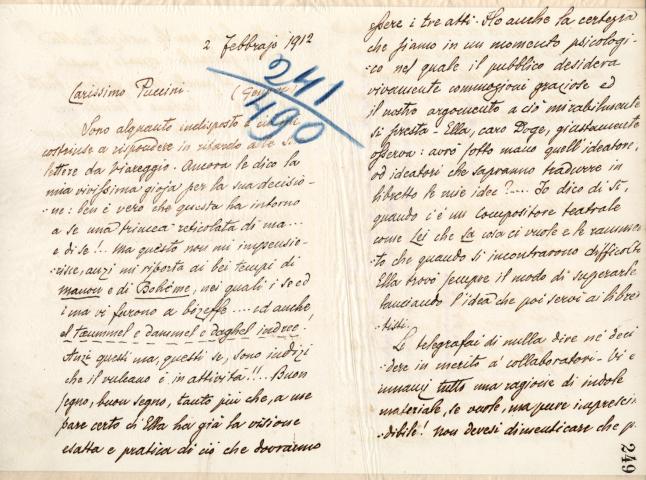 2 Febbrajo 1912
Carissimo Puccini.
241
490
Sono alquanto indisposto e
costrinse a rispondere in ritardo alle Su
lettere da Viareggio. Ancora le dico la
mia vivissima gioja per la sua decisio-
-ne: ben è vero che questa ha intorno
a se una trincea reticolata di ma...
e di se!.. Ma questo non mi impensie-
risce, anzi mi riporta ai bei tempi di
Manon e di Bohème, nei quali i se ed
i ma vi furono a bizeffe .... ed anche
el tæummel e dammel e daghel indree!
Anzi questi ma, questi se, sono indizi
che il vulcano è in attività!!.. Buon
segno, buon segno, tanto più che, a me
pare certo ch'Ella ha già la visione
esatta e pratica di ciò che dovranno
essere i tre atti. Ho anche la certezza
che siamo in un momento psicologi-
-co nel quale il pubblico desidera
vivamente commozioni graziose ed
il nostro argomento a ciò mirabilmente
si presta - Ella, caro Doge, giustamente
osserva: avrò sotto mano quell'ideatore,
od ideatori che sapranno tradurre in
libretto le mie idee?.... Io dico di sì,
quando c'è un compositore teatrale
come Lei che sa cosa ci vuole e le rammen
to che quando si incontrarono difficoltà
Ella trovò sempre il modo di superarle
lanciando l'idea che poi servì ai libret
-tisti.
Le telegrafai di nulla dire nè deci
dere in merito a' collaboratori - Vi è
innanzi tutto una ragione di indole
materiale, se vuole, ma pure imprescin
-dibile! Non devesi dimenticare che p
249